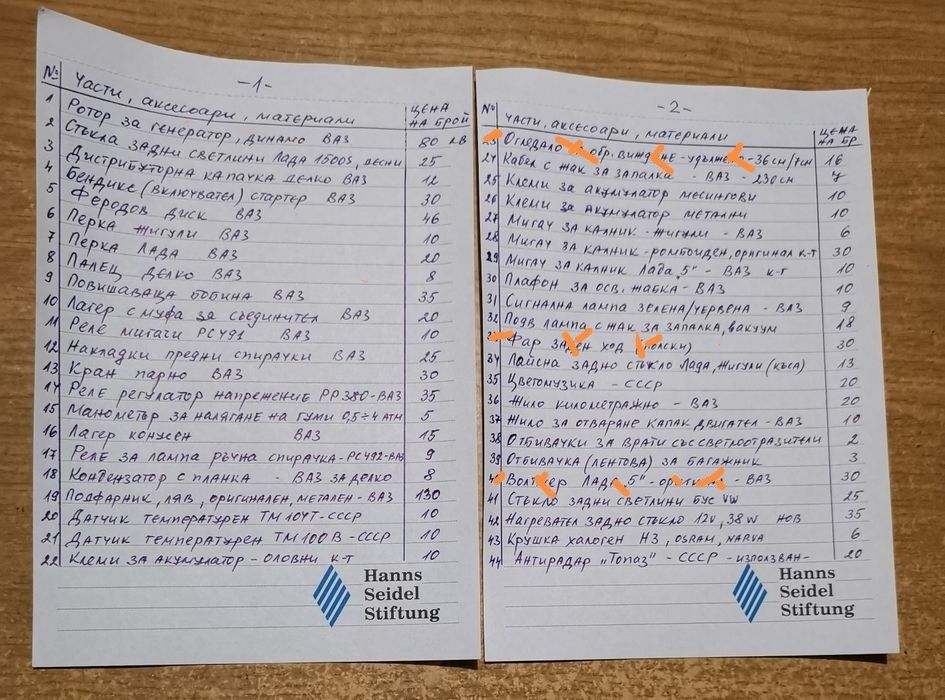 -1-
№ Части, аксесоари, материали ЦЕНА НА БРОЙ
1 Ротор за генератор, динамо ВАЗ 80 лв
2 Стъкла задни светлини Лада 1500S, десни 25
3 Дистрибуторна капачка делко ВАЗ 12
4 Бендикс (включвател) стартер ВАЗ 30
5 Феродов диск ВАЗ 46
6 Перка Жигули ВАЗ 10
7 Перка Лада ВАЗ 20
8 Палец делко ВАЗ 8
9 Повишаваща бобина ВАЗ 35
10 Лагер с муфа за съединител ВАЗ 20
11 Реле мигачи РС491 ВАЗ 10
12 Накладки предни спирачки ВАЗ 25
13 Кран парно ВАЗ 30
14 Реле регулатор напрежение РР380-ВАЗ 35
15 Манометър за налягане на гуми 0,5÷4 атм 5
16 Лагер конусен ВАЗ 15
17 Реле за лампа ръчна спирачка-РС492-ВАЗ 9
18 Кондензатор с планка - ВАЗ за делко 8
19 Подфарник, ляв, оригинален, метален-ВАЗ 130
20 Датчик температурен ТМ104Т-СССР 10
21 Датчик температурен ТМ100В-СССР 10
22 Клеми за акумулатор-оловни к-т 10
Hanns
Seidel
Stiftung
-2-
№ Части, аксесоари, материали ЦЕНА НА БР
23 Огледало обр. -36см/7см 16
24 Кабел с жак за запалка - ВАЗ - 230см 7
25 Клеми за акумулатор месингови 10
26 Клеми за акумулатор метални 10
27 Мигач за калник - Жигули - ВАЗ 6
28 Мигач за калник - ромбоиден, оригинал к-т 30
29 Мигач за калник Лада „5" - ВАЗ к-т 10
30 Плафон за осв. жабка - ВАЗ 10
31 Сигнална лампа зелена/червена - ВАЗ 9
32 Подв лампа с жак за запалка, вакуум 18
Фар заден ход (полски) 30
34 Лайсна задно стъкло Лада, Жигули (къса) 13
35 Цветомузика - СССР 20
36 Жило километражно - ВАЗ 20
37 Жило за отваряне капак двигател - ВАЗ 10
38 Отбивачки за врати със светроотразители 2
39 Отбивачка (лентова) за багажник 3
Лада „5" - ВАЗ 30
41 Стъкло задни светлини бус VW 25
42 Нагревател задно стъкло 12V, 38W нов 35
43 Крушка халоген H3, OSRAM, NARVA 6
44 Антирадар „Топаз" - СССР - използван- 20
Hanns
Seidel
Stiftung